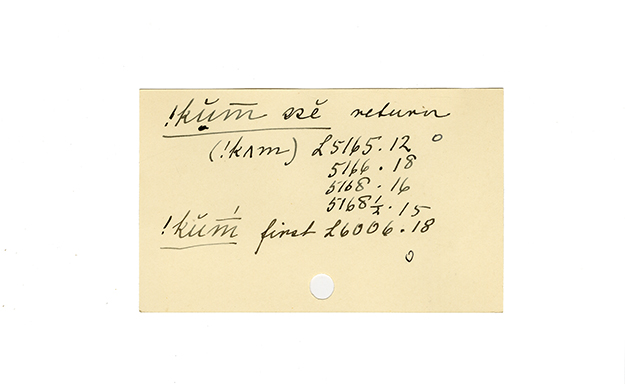 !kŭm̄ ssĕ return
(!kʌm) L5165.12 o
5166.18
5168.16
5168½.15
!kŭḿ first L6006.18
o